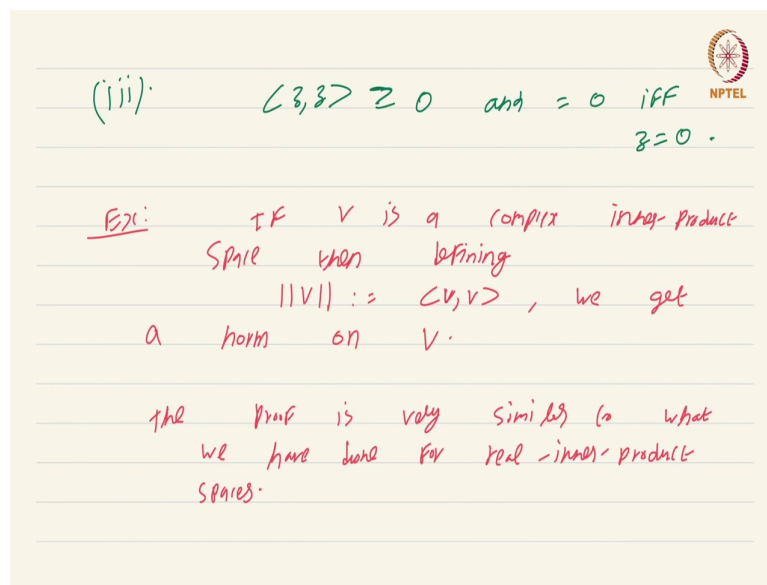 (iii). <z,z> ≥ 0 and = 0 iff
NPTEL
z=0.
Ex: If V is a complex inner-product
space then defining
||V|| := <v,v>, we get
a norm on V.
the proof is very similar to what
we have done for real-inner-product
spaces.